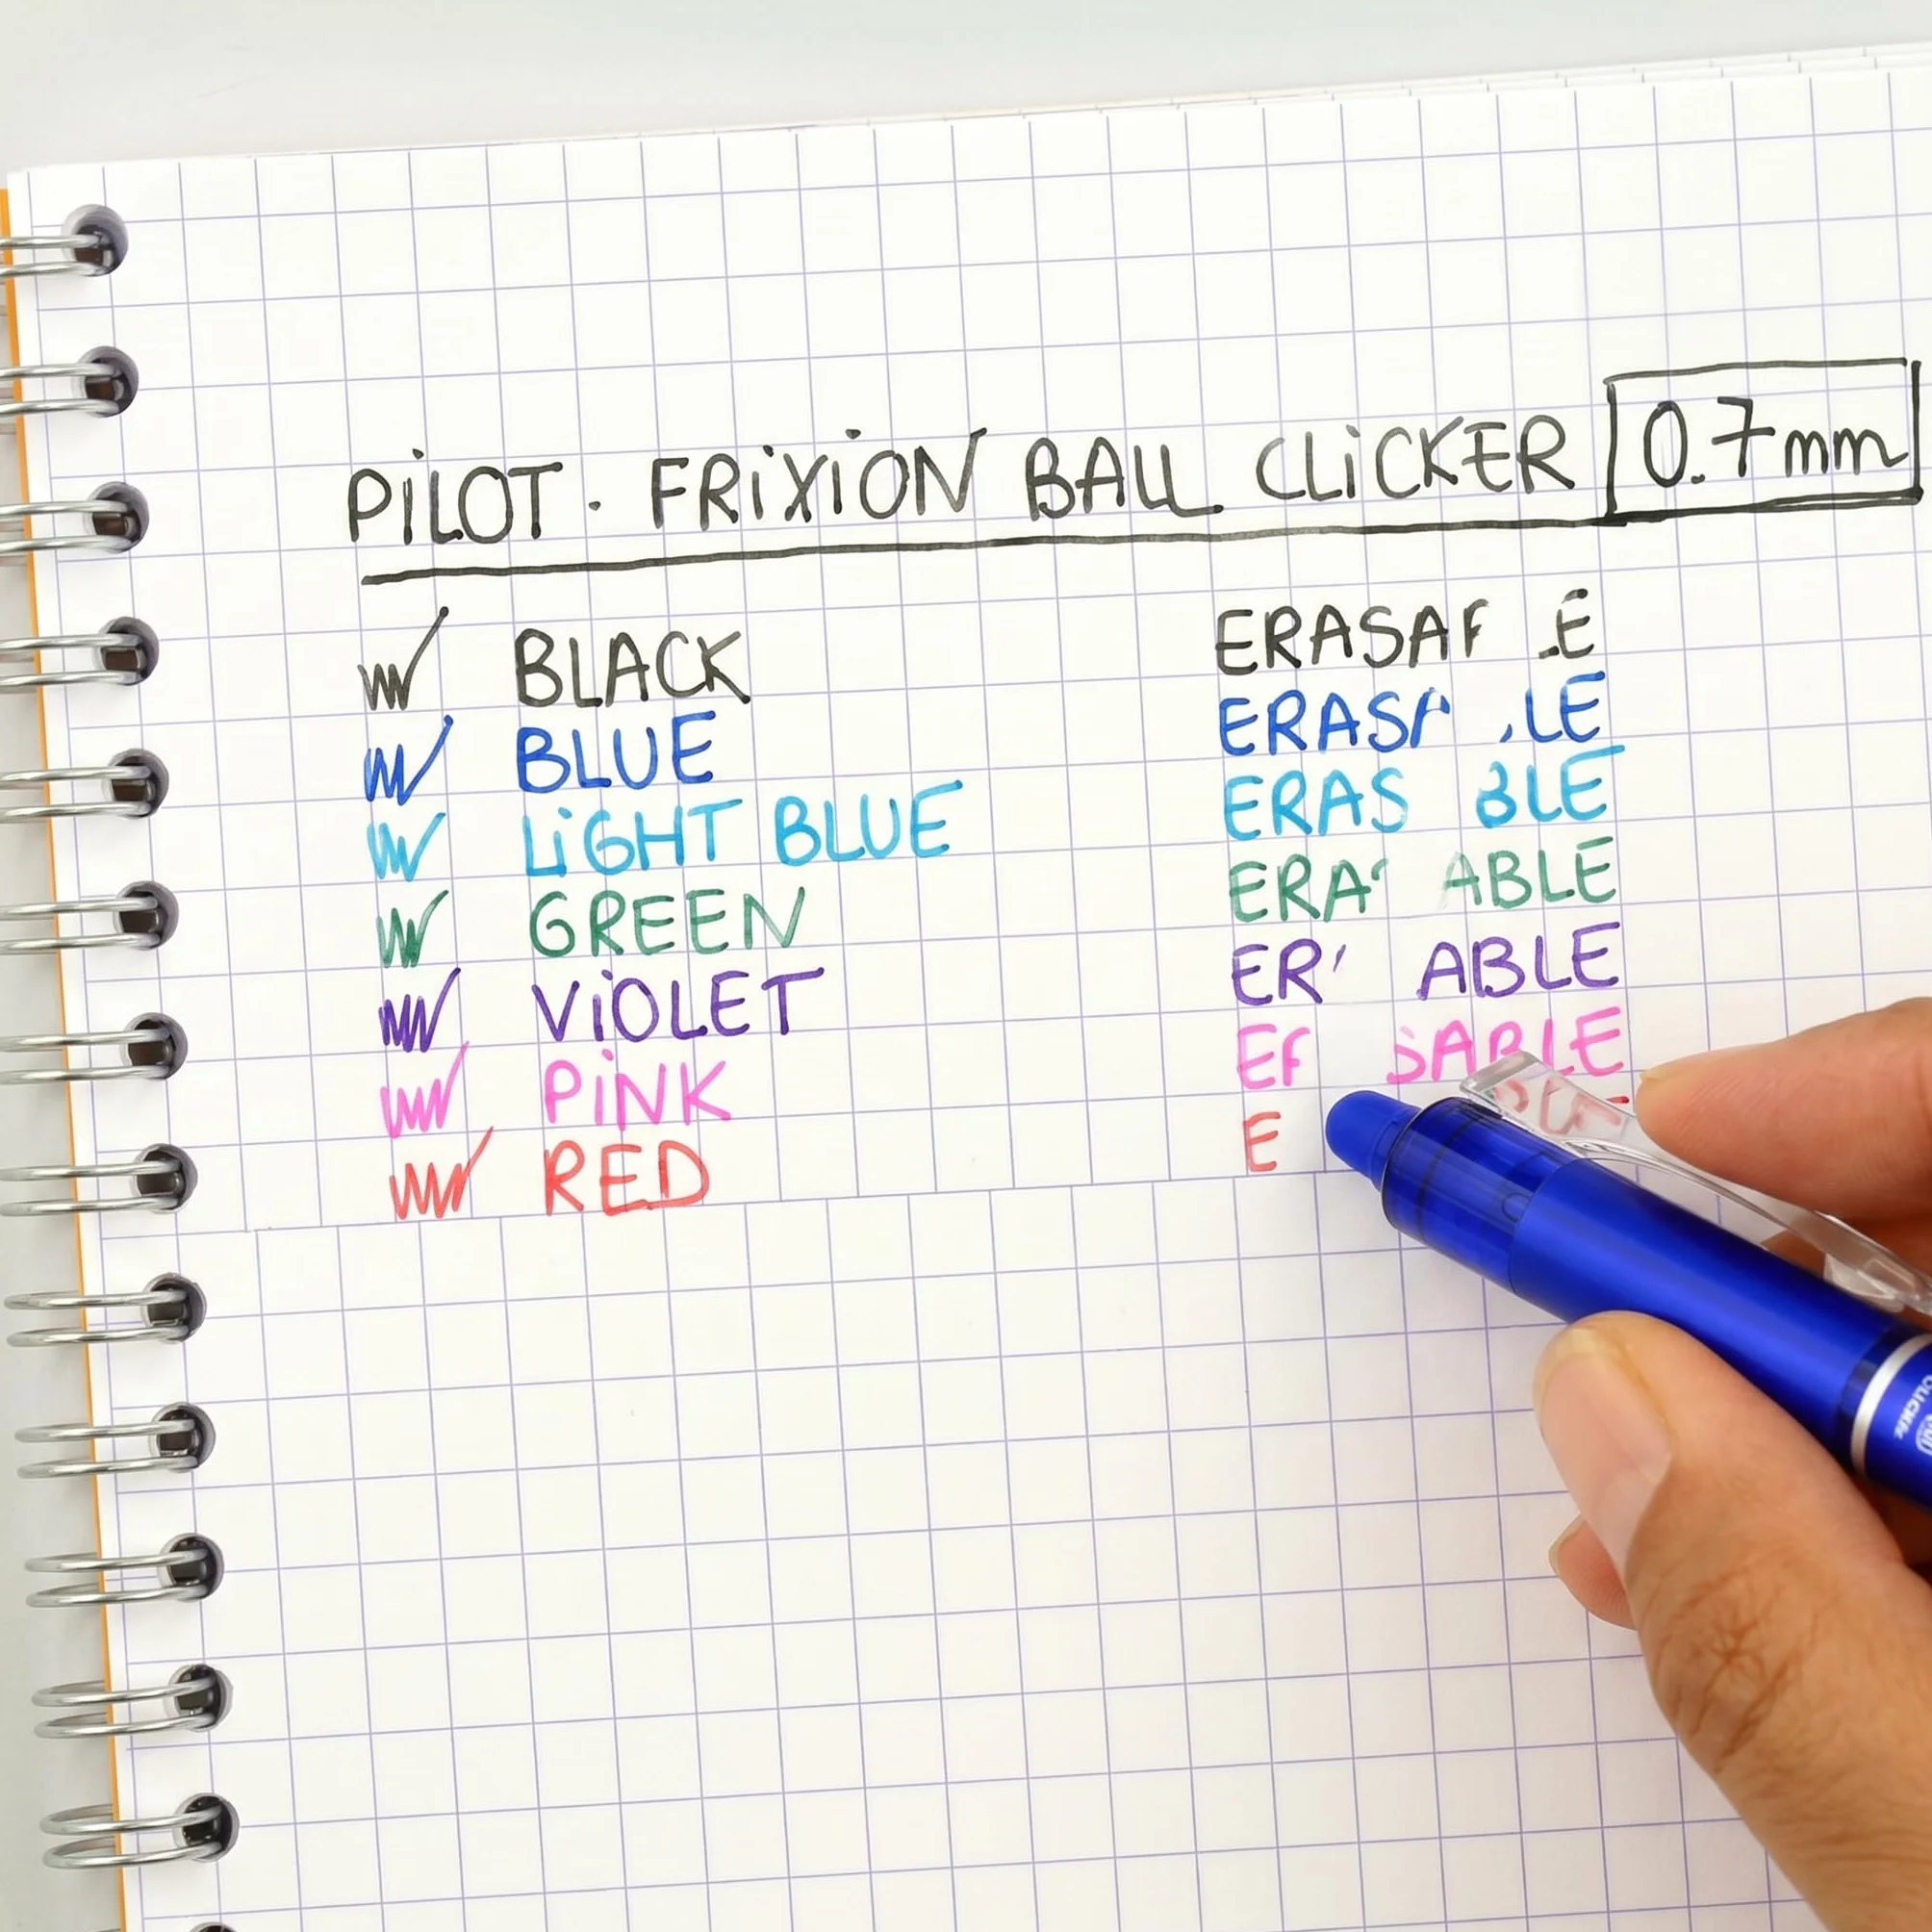 PiLOT · FRiXiON BALL CLiCKER 0.7mm
BLACK ERASA E
BLUE ERAS LE
LiGHT BLUE ERAS BLE
GREEN ERA ABLE
ViOLET ER ABLE
PiNK E SABLE
RED E